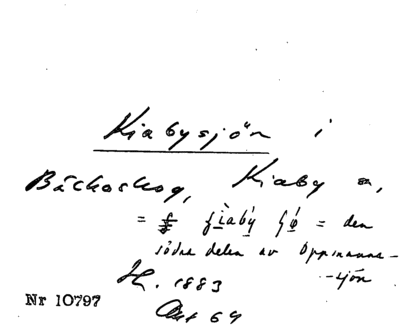 Kiabysjön i
Bäckaskog, Kiaby sn,
= den
södra delen av Oppmanna-
-sjön
1883
Nr 10797
64